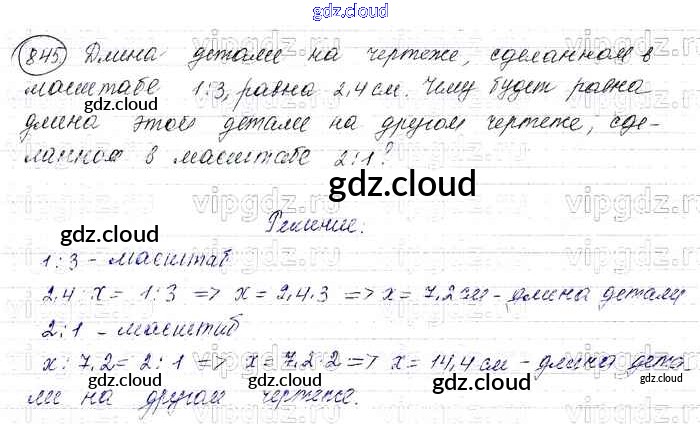 gdz.cloud
845 Длина детали на чертеже, сделанном в
масштабе 1:3, равна 2,4 см. Чему будет равна
длина этой детали на другом чертеже, сде-
ланном в масштабе 2:1?
Решение:
1:3 - масштаб
2,4 : x = 1:3 => x = 2,4·3 => x = 7,2 см - длина детали
2:1 - масштаб
x : 7,2 = 2:1 => x = 7,2·2 => x = 14,4 см - длина дета
ли на другом чертеже.
gdz.cloud
gdz.cloud
gdz.cloud
gdz.cloud
gdz.cloud
gdz.cloud
gdz.cloud
gdz.cloud